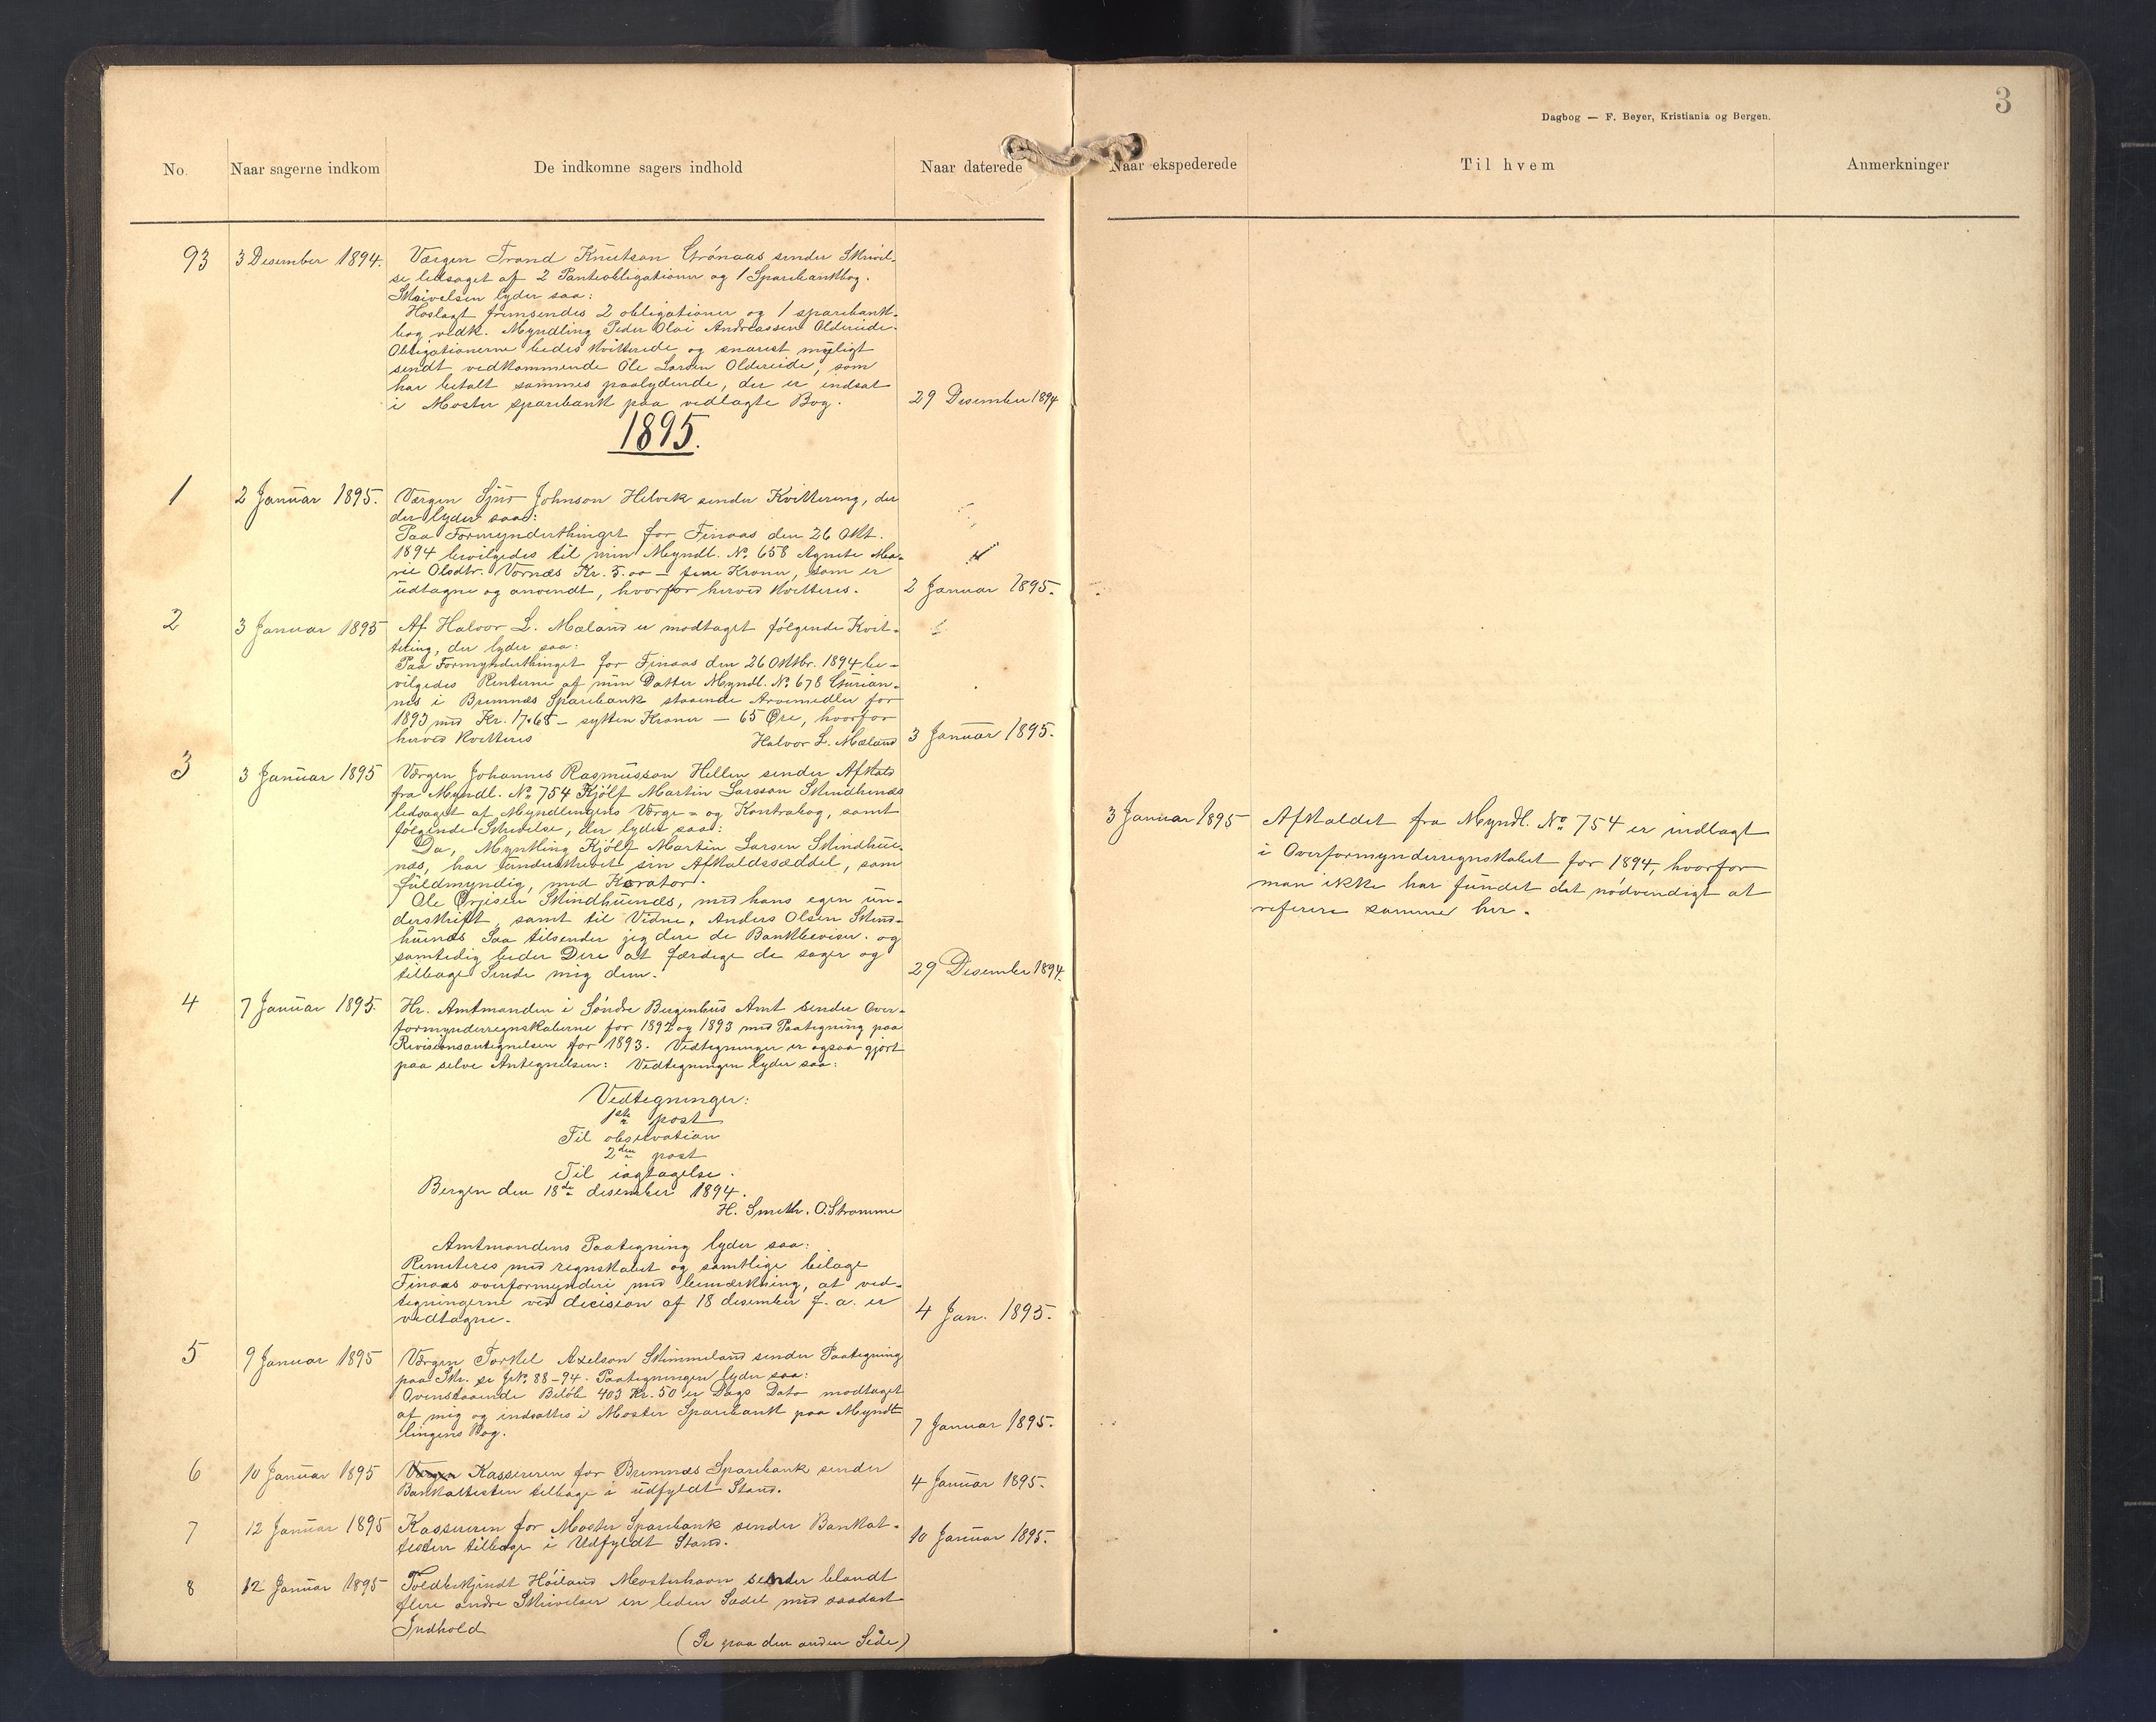 3
Dagbog — F. Beyer, Kristiania og Bergen.
No. Naar sagerne indkom De indkomne sagers indhold Naar daterede Naar ekspederede Til hvem Anmerkninger
93 3 Desember 1894. Værgen Trond Knutson Grönaas sender Skrivel-
se ledsaget af 2 Panteobligationer og 1 Sparebankbog.
Skrivelsen lyder saa:
Hoslagt fremsendes 2 obligationer og 1 sparebank-
bog vedk. Myndling Peder Olai Andreassen Oldereide.
Obligationerne bedes kvitterede og snarest muligt
sendt vedkommende Ole Larsen Oldereide, som
har betalt sammes paalydende, der er indsat
i Moster sparebank paa vedlagte Bog. 29 Desember 1894
1895.
1 2 Januar 1895. Værgen Sjur Johnson Helvik sender Kvittering, der
der lyder saa:
Paa Formynderthinget for Finaas den 26 Okt.
1894 bevilgedes til min Myndl. No 658 Agnete Ma-
rie Olsdtr. Vornæs Kr. 5.00 — fem Kroner, som er
udtagne og anvendt, hvorfor herved kvitteres. 2 Januar 1895.
2 3 Januar 1895 Af Halvor L. Mæland er modtaget følgende Kvit-
tering, der lyder saa:
Paa Formynderthinget for Finaas den 26 Oktbr. 1894 be-
vilgedes Renterne af min Datter Myndl. No 678 Gurian-
nes i Bremnæs Sparebank staaende Arvemidler for
1893 med Kr. 17.65 — sytten Kroner — 65 Øre, hvorfor
herved kvitteres Halvor L. Mæland 3 Januar 1895.
3 3 Januar 1895 Værgen Johannes Rasmusson Hellen sender Afkald
fra Myndl. No 754 Kjölf Martin Larsson Skindhunæs
ledsaget af Myndlingens Værge- og Kontrabog, samt
følgende Skrivelse, der lyder saa:
Da, Myntling Kjölf Martin Larsen Skindhue-
næs, har underskrevet sin Afkaldssæddel, som
fuldmyndig, med Korator.
Ole Ørjisen Skindhuenæs, med hans egen un-
derskrift, samt til Vidne, Anders Olsen Skind-
huenæs Saa tilsender jeg dere de Bankbeviser. og
samtedig beder Dere at færdige de sager og
tilbage Sende mig dem. 29 Desember 1894.
3 Januar 1895 Afkaldet fra Myndl. No 754 er indtagt
i Overformynderregnskabet for 1894, hvorfor
man ikke har fundet det nødvendigt at
referere samme her.
4 7 Januar 1895. Hr. Amtmanden i Söndre Bergenhus Amt sender Over-
formynderregnskaberne for 1892 og 1893 med Paategning paa
Revisionsantegnelsen for 1893. Vedtegninger er ogsaa gjort
paa selve Antegnelsen: Vedtegningen lyder saa:
Vedtegninger:
1ste post
Til observation
2den post
Til iagtagelse.
Bergen den 18de desember 1894.
H. Smith. O. Stromme
Amtmandens Paategning lyder saa:
Remiteres med regnskabet og samtlige bilage
Finaas overformynderi med bemærkning, at ved-
tegningerne ved decision af 18 desember f. a. er
vedtagne. 4 Jan. 1895.
5 9 Januar 1895 Værgen Torkel Axelson Skimmeland sender Paategning
paa Skr. se JNo 88-94. Paategningen lyder saa:
Ovenstaaende Beløb 403 Kr. 50 er Dags Dato modtaget
af mig og indsættes i Moster Sparebank paa Mynd-
lingens Bog. 7 Januar 1895.
6 10 Januar 1895 Værgen Kassereren for Bremnæs Sparebank sender
Bankattesten tilbage i udfyldt Stand. 4 Januar 1895.
7 12 Januar 1895 Kassereren for Moster Sparebank sender Bankat-
testen tilbage i Udfyldt Stand. 10 Januar 1895.
8 12 Januar 1895 Toldbetjendt Höiland Mosterhavn sender blandt
flere andre Skrivelser en leden Sædel med saadant
Indhold
(Se paa den anden Side)